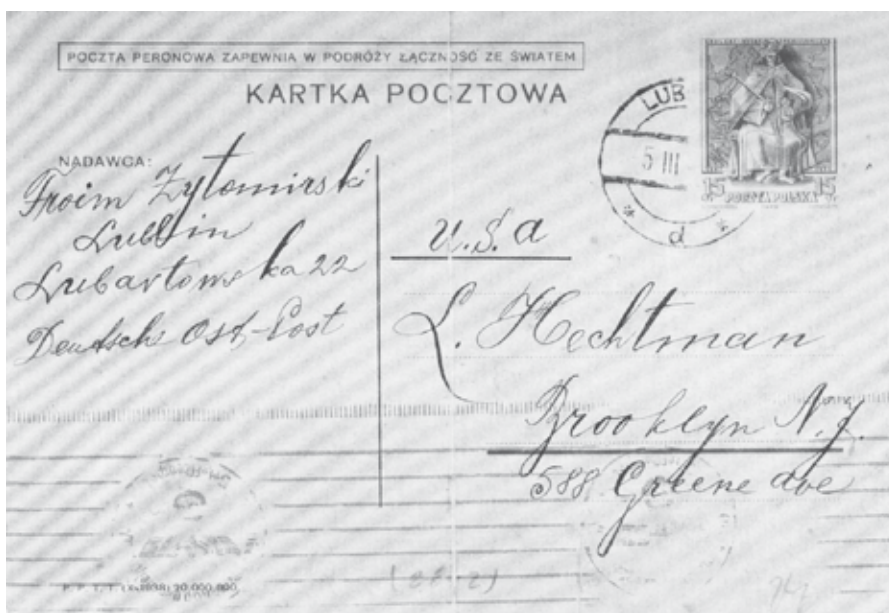 POCZTA PERONOWA ZAPEWNIA W PODRÓŻY ŁĄCZNOŚĆ ZE ŚWIATEM
KARTKA POCZTOWA
LUB
5 III
d
15 15
POCZTA POLSKA
NADAWCA:
Froim Zytomirski
Lublin
Lubartowska 22
Deutsch Ost-Post
U.S.A
L. Hechtman
Brooklyn N.J.
588 Greene ave